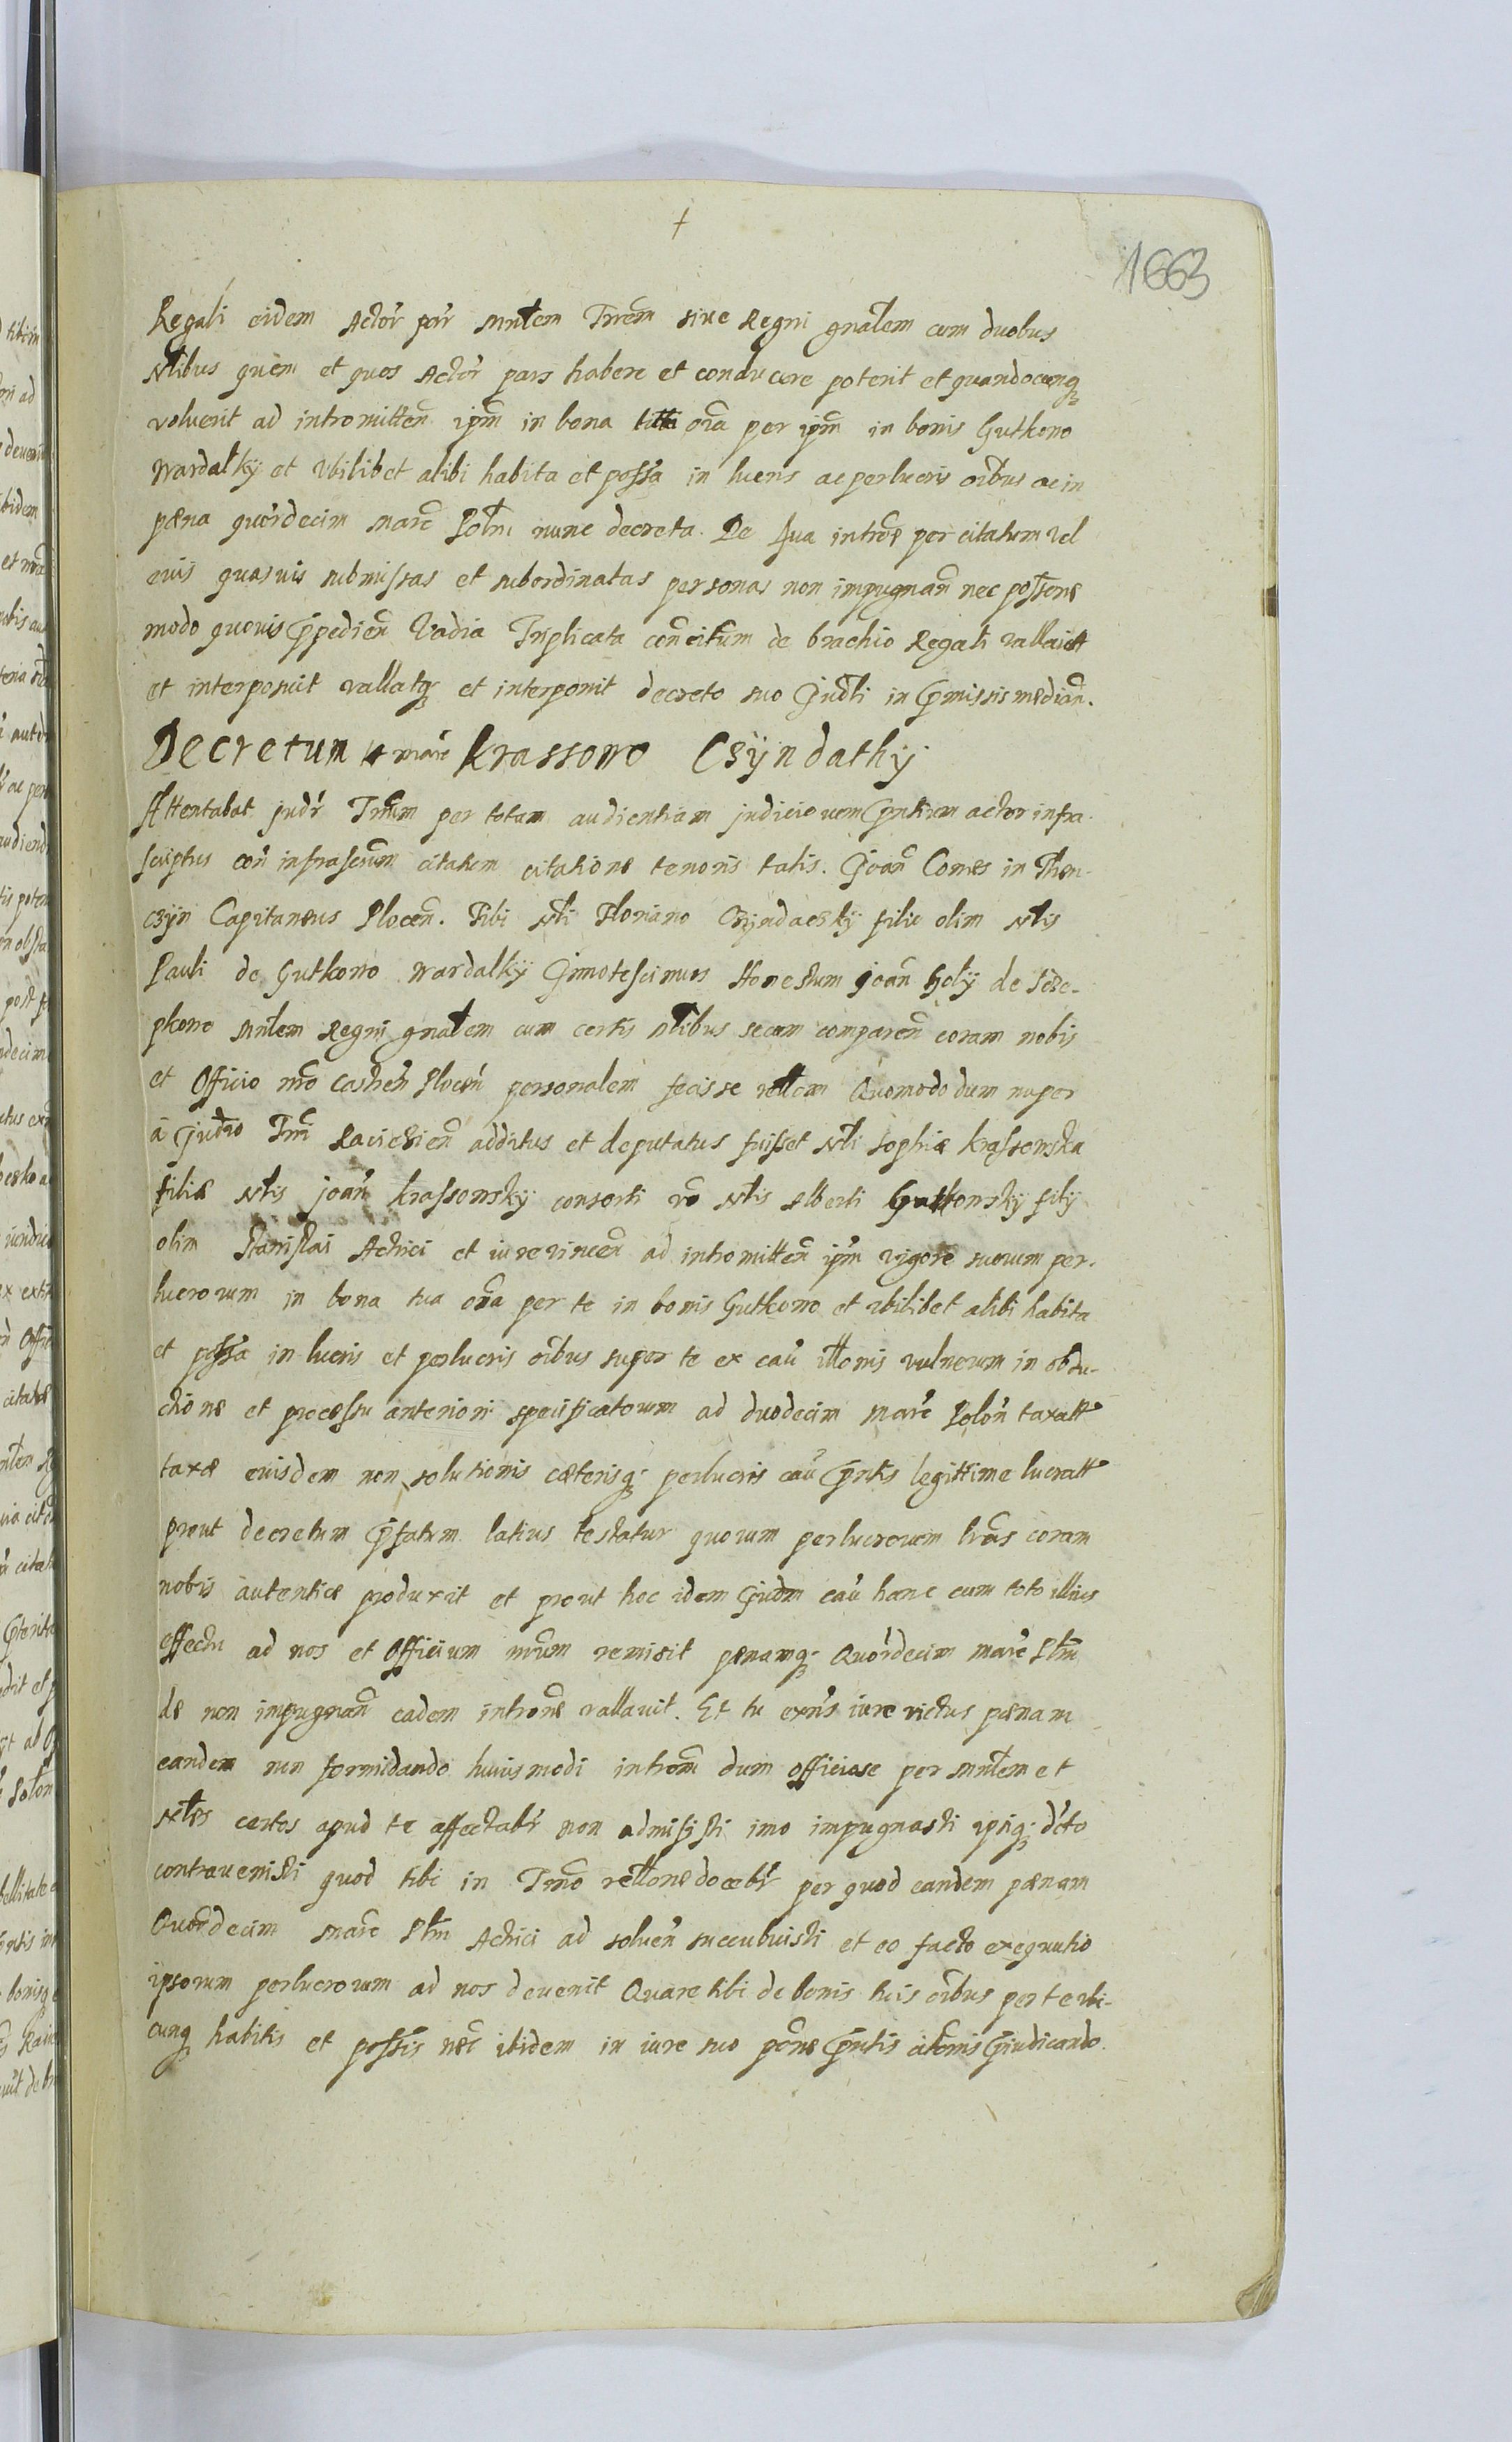 +
1663
Regali eidem Actor par mnlem Trrem sive Regni gnalem cum duobus
Nlibus quem et quos Actor pars habere et conducere poterit et quandocunq
voluerit ad intromitten ipm in bona oia per ipm in bonis Gutkowo
Wardalky et Vbilibet alibi habita et possa in lucris ac perlucris oibus ac in
pæna quordecim marc Polni nunc decreta. De qua introe per citatum vel
euis quasuis submissas et subordinatas personas non impugnan nec posse
modo quouis Ppedien Vadia Triplicata citum de brachio Regali vallauit
et interposuit vallatq et interponit decreto suo Judli in Pmissis median.
Decretum 14 marc Krassowo Czyndathy
Attentabat judr Trmm per totam audientiam judiciorum Pntium actor infra
scriptus con infrascrum citatum citatione tenoris talis. Joan Comes in Then-
czyn Capitaneus Plocen. Tibi Nli Floriano Czyndaczky filio olim Nlis
Pauli de Gutkowo Wardalky Innotescimus Honestum Joan Holy de
pkowo mnlem Regni gnalem cum certis Nlibus secum comparen coram nobis
et Officio nro Castren Plocen personalem fecisse rellem Quomodo dum nuper
à Judio Trri Raciezien additus et deputatus fuisset Nli Sophiæ Krassowska
filiæ Nlis Joan Krassowsky consorti vo Nlis Alberti Gutkowsky filij
olim Stanislai Actrici et iurevincen ad intromitten ipm vigore suorum per-
lucrorum in bona tua oia per te in bonis Gutkowo et vbilibet alibi habita
et possa in lucris et perlucris oibus super te ex cau illonis vulnerum in obdu-
ctione et processu anteriori specificatorum ad duodecim marc Polon taxatt
taxæ euisdem non solutionis cæterisq perlucris cau Pntis legittime lucratt
prout decretum Pfatum latius testatur quorum perlucrorum lras coram
nobis autentice produxit et prout hoc idem Judm cau hanc cum toto illius
effectu ad nos et Officium nrum remisit pænamq Quordecim marc Plm
de non impugnan eadem introne vallauit. Et tu exns iure victus pænam
eandem non formidando huiusmodi introm dum officiose per mnlem et
Nles certos apud te affectabr non admisisti imo impugnasti ipsiq dcto
contrauenisti quod tibi in Trmo rellone docebr per quod eandem pænam
Quordecim marc Plm Actrici ad soluen succubuisti et eo facto exequutio
ipsorum perlucrorum ad nos deuenit Quare tibi de bonis tuis oibus per te vbi-
cunq habitis et possis nec ibidem in iure suo pone Pntis citonis Piudicando